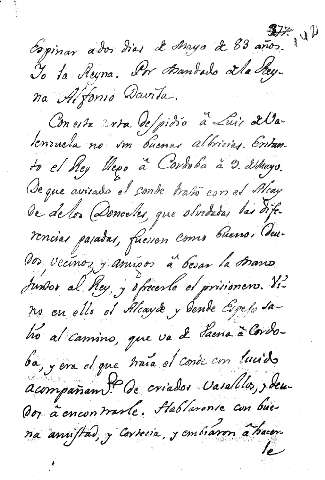 142
Espinar a dos dias de Mayo de 83 años.
Yo la Reyna. Por mandado de la Rey-
na Alfonso Davila.
Con esta carta despidio â Luis de Va-
lenzuela no sin buenas albricias. Entan-
to el Rey llego â Cordoba â 9. de Mayo.
De que avisado el conde trato con el Alcay-
de de los Donceles, que olvidadas las dife-
rencias pasadas, fuesen como buenos deu-
dos, vecinos, y amigos â besar la mano
juntos al Rey, y ofrecerle el prisionero. Vi-
no en ello el Alcayde, y desde Espejo sa-
lio al camino, que va de Baena â Cordo-
ba, y era el que traía el conde con lucido
acompañam.to de criados vasallos, y deu-
dos â encontrarle. Hablaronse con bue-
na amistad, y cortesia, y embiaron â hacer-
le